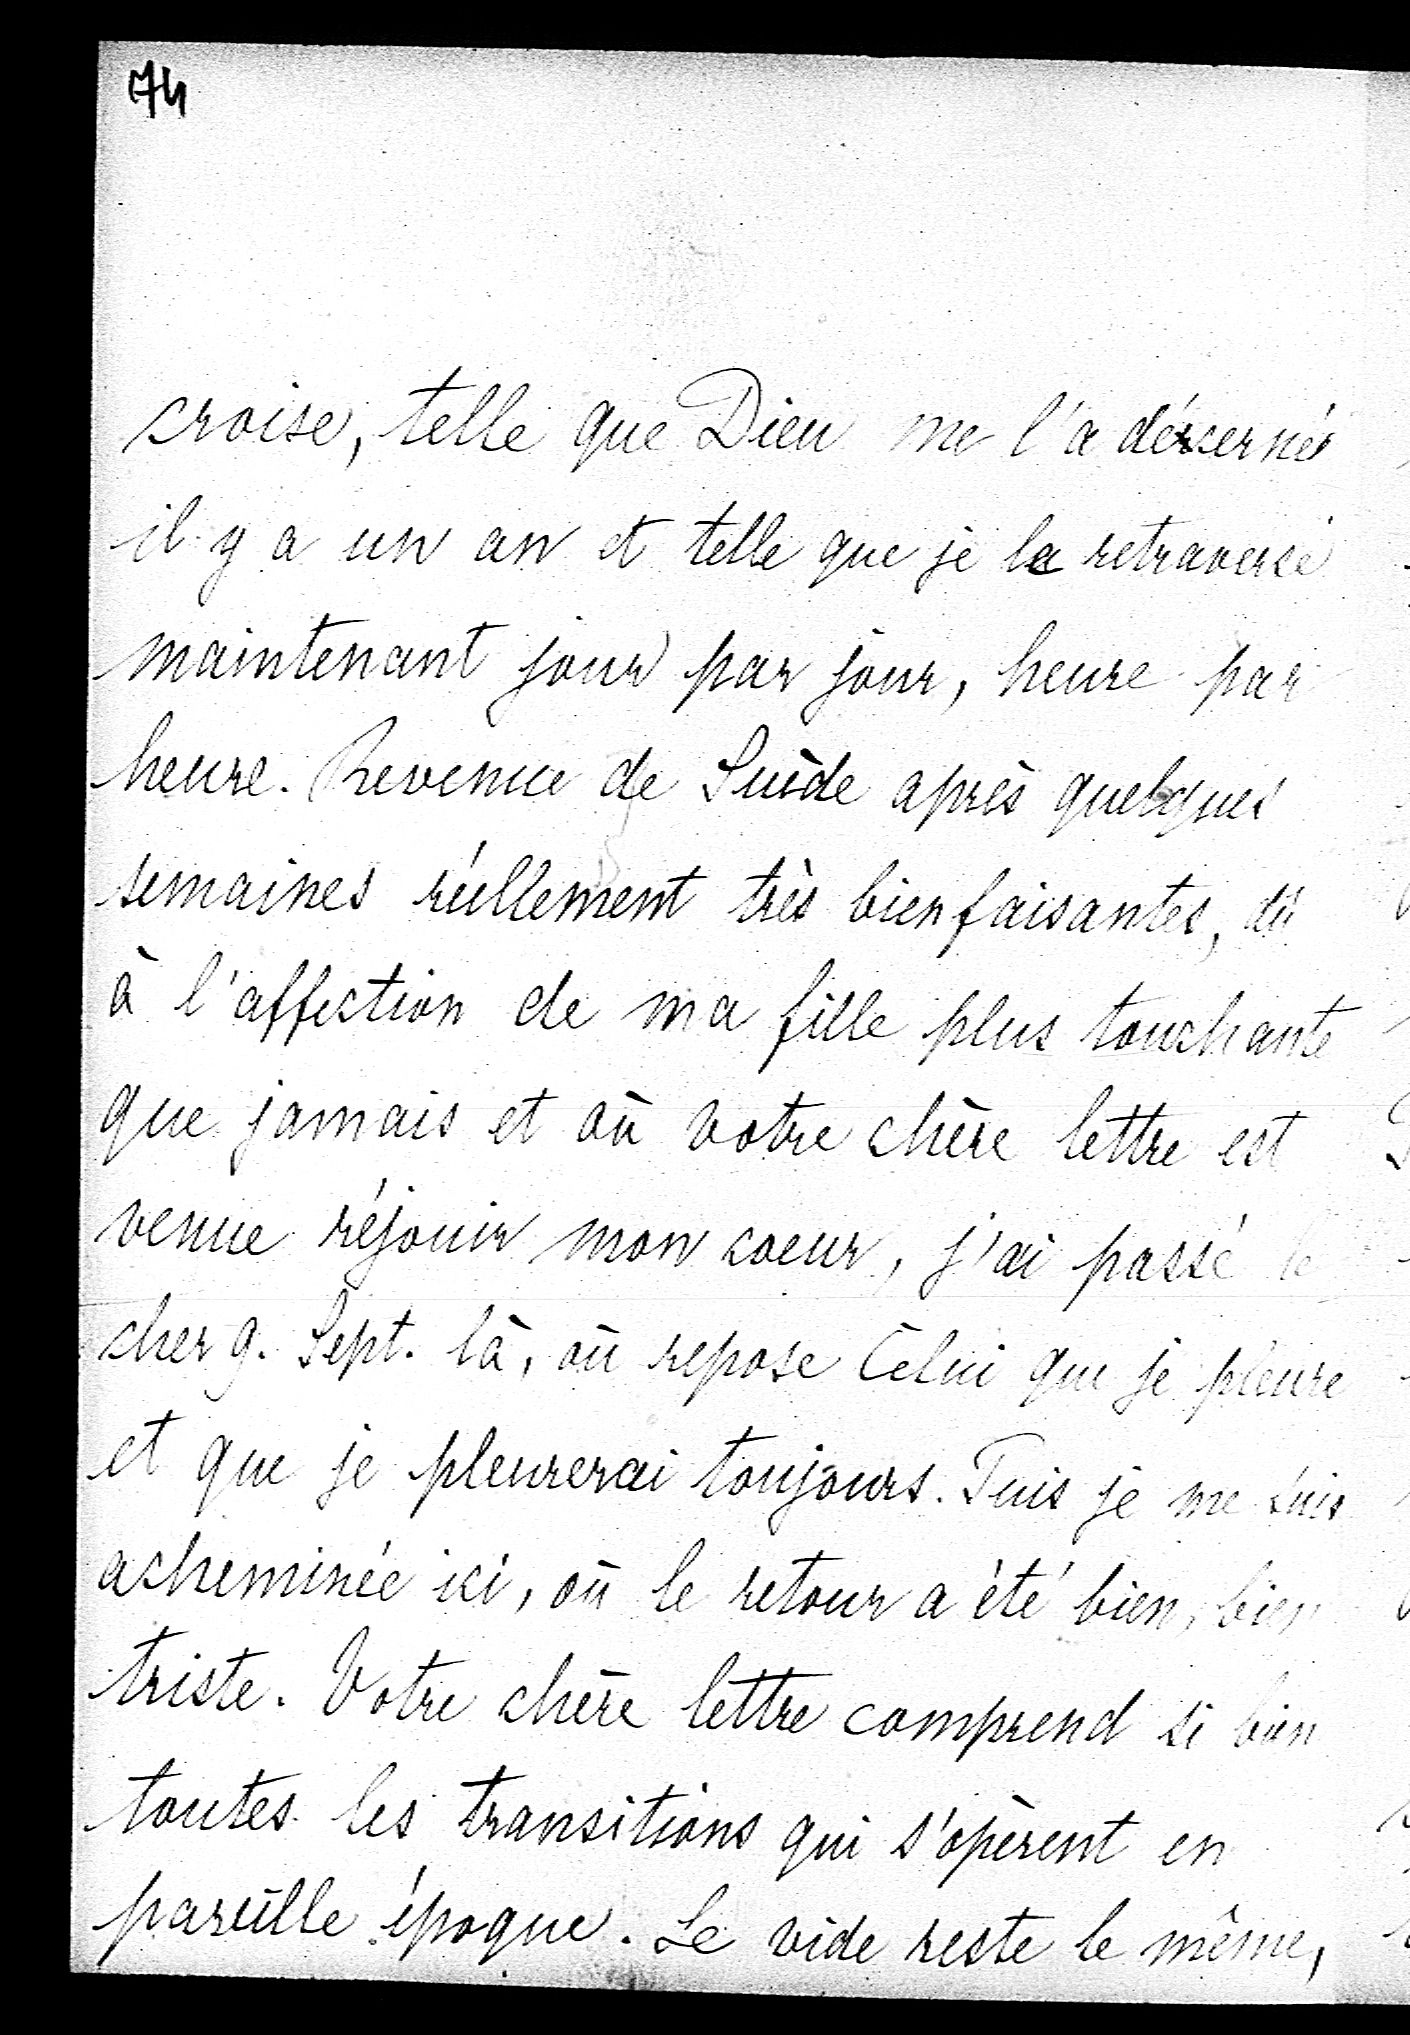 74
croise, telle que Dieu me l'a décernée
il y a un an et telle que je la retraverse
maintenant jour par jour, heure par
heure. Revenue de Suède après quelques
semaines réellement très bienfaisantes, dû
à l'affection de ma fille plus touchante
que jamais et où votre chère lettre est
venue réjouir mon coeur, j'ai passé le
cher 9. Sept. là, où repose Celui que je pleure
et que je pleurerai toujours. Puis je me suis
acheminée ici, où le retour a été bien, bien
triste. Votre chère lettre comprend si bien
toutes les transitions qui s'opèrent en
pareille époque. Le vide reste le même,